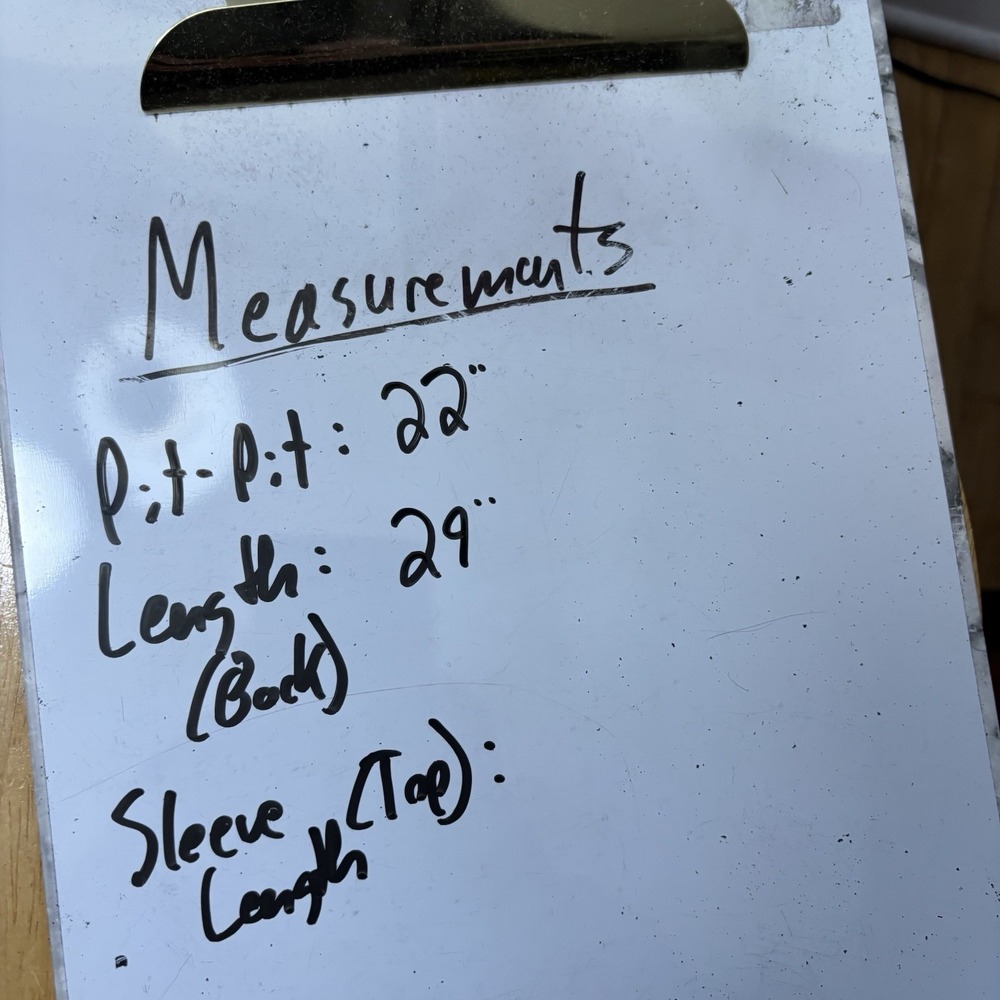 Measurements
Pit-Pit: 22"
Length: 29"
(Back)
Sleeve (Top):
Length